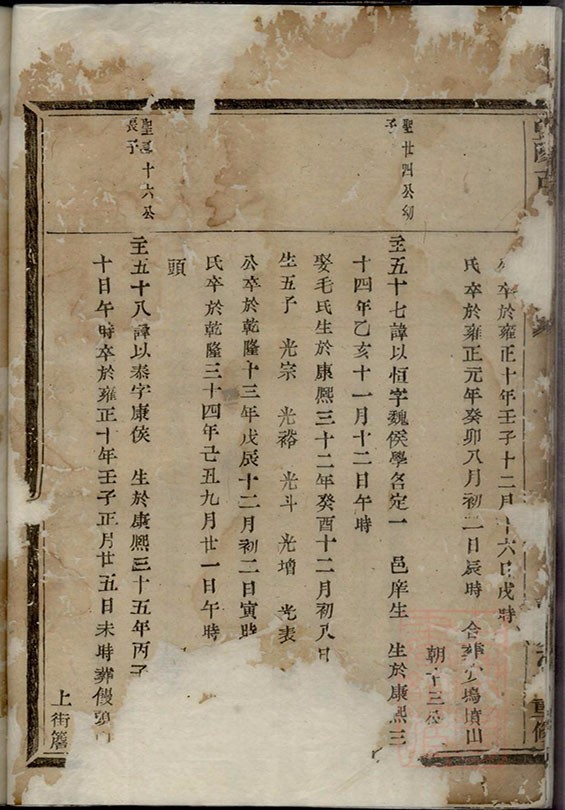 卒於雍正十年壬子十二月十六日戌時
氏卒於雍正元年癸卯八月初二日辰時 合葬 塢墳山
朝十三公
聖廿四公幼
子
五十七諱以恒字魏侯學名定一 邑庠生 生於康熙三
十四年乙亥十一月十二日午時
娶毛氏生於康熙三十二年癸酉十二月初八日
生五子 光宗 光裕 光斗 光增 光表
公卒於乾隆十三年戊辰十二月初二日寅時
氏卒於乾隆三十四年己丑九月廿一日午時
頭
聖 十六公
長子
五十八諱以泰字康侯 生於康熙三十五年丙子
十日午時卒於雍正十年壬子正月廿五日未時葬饅頭
上街簷